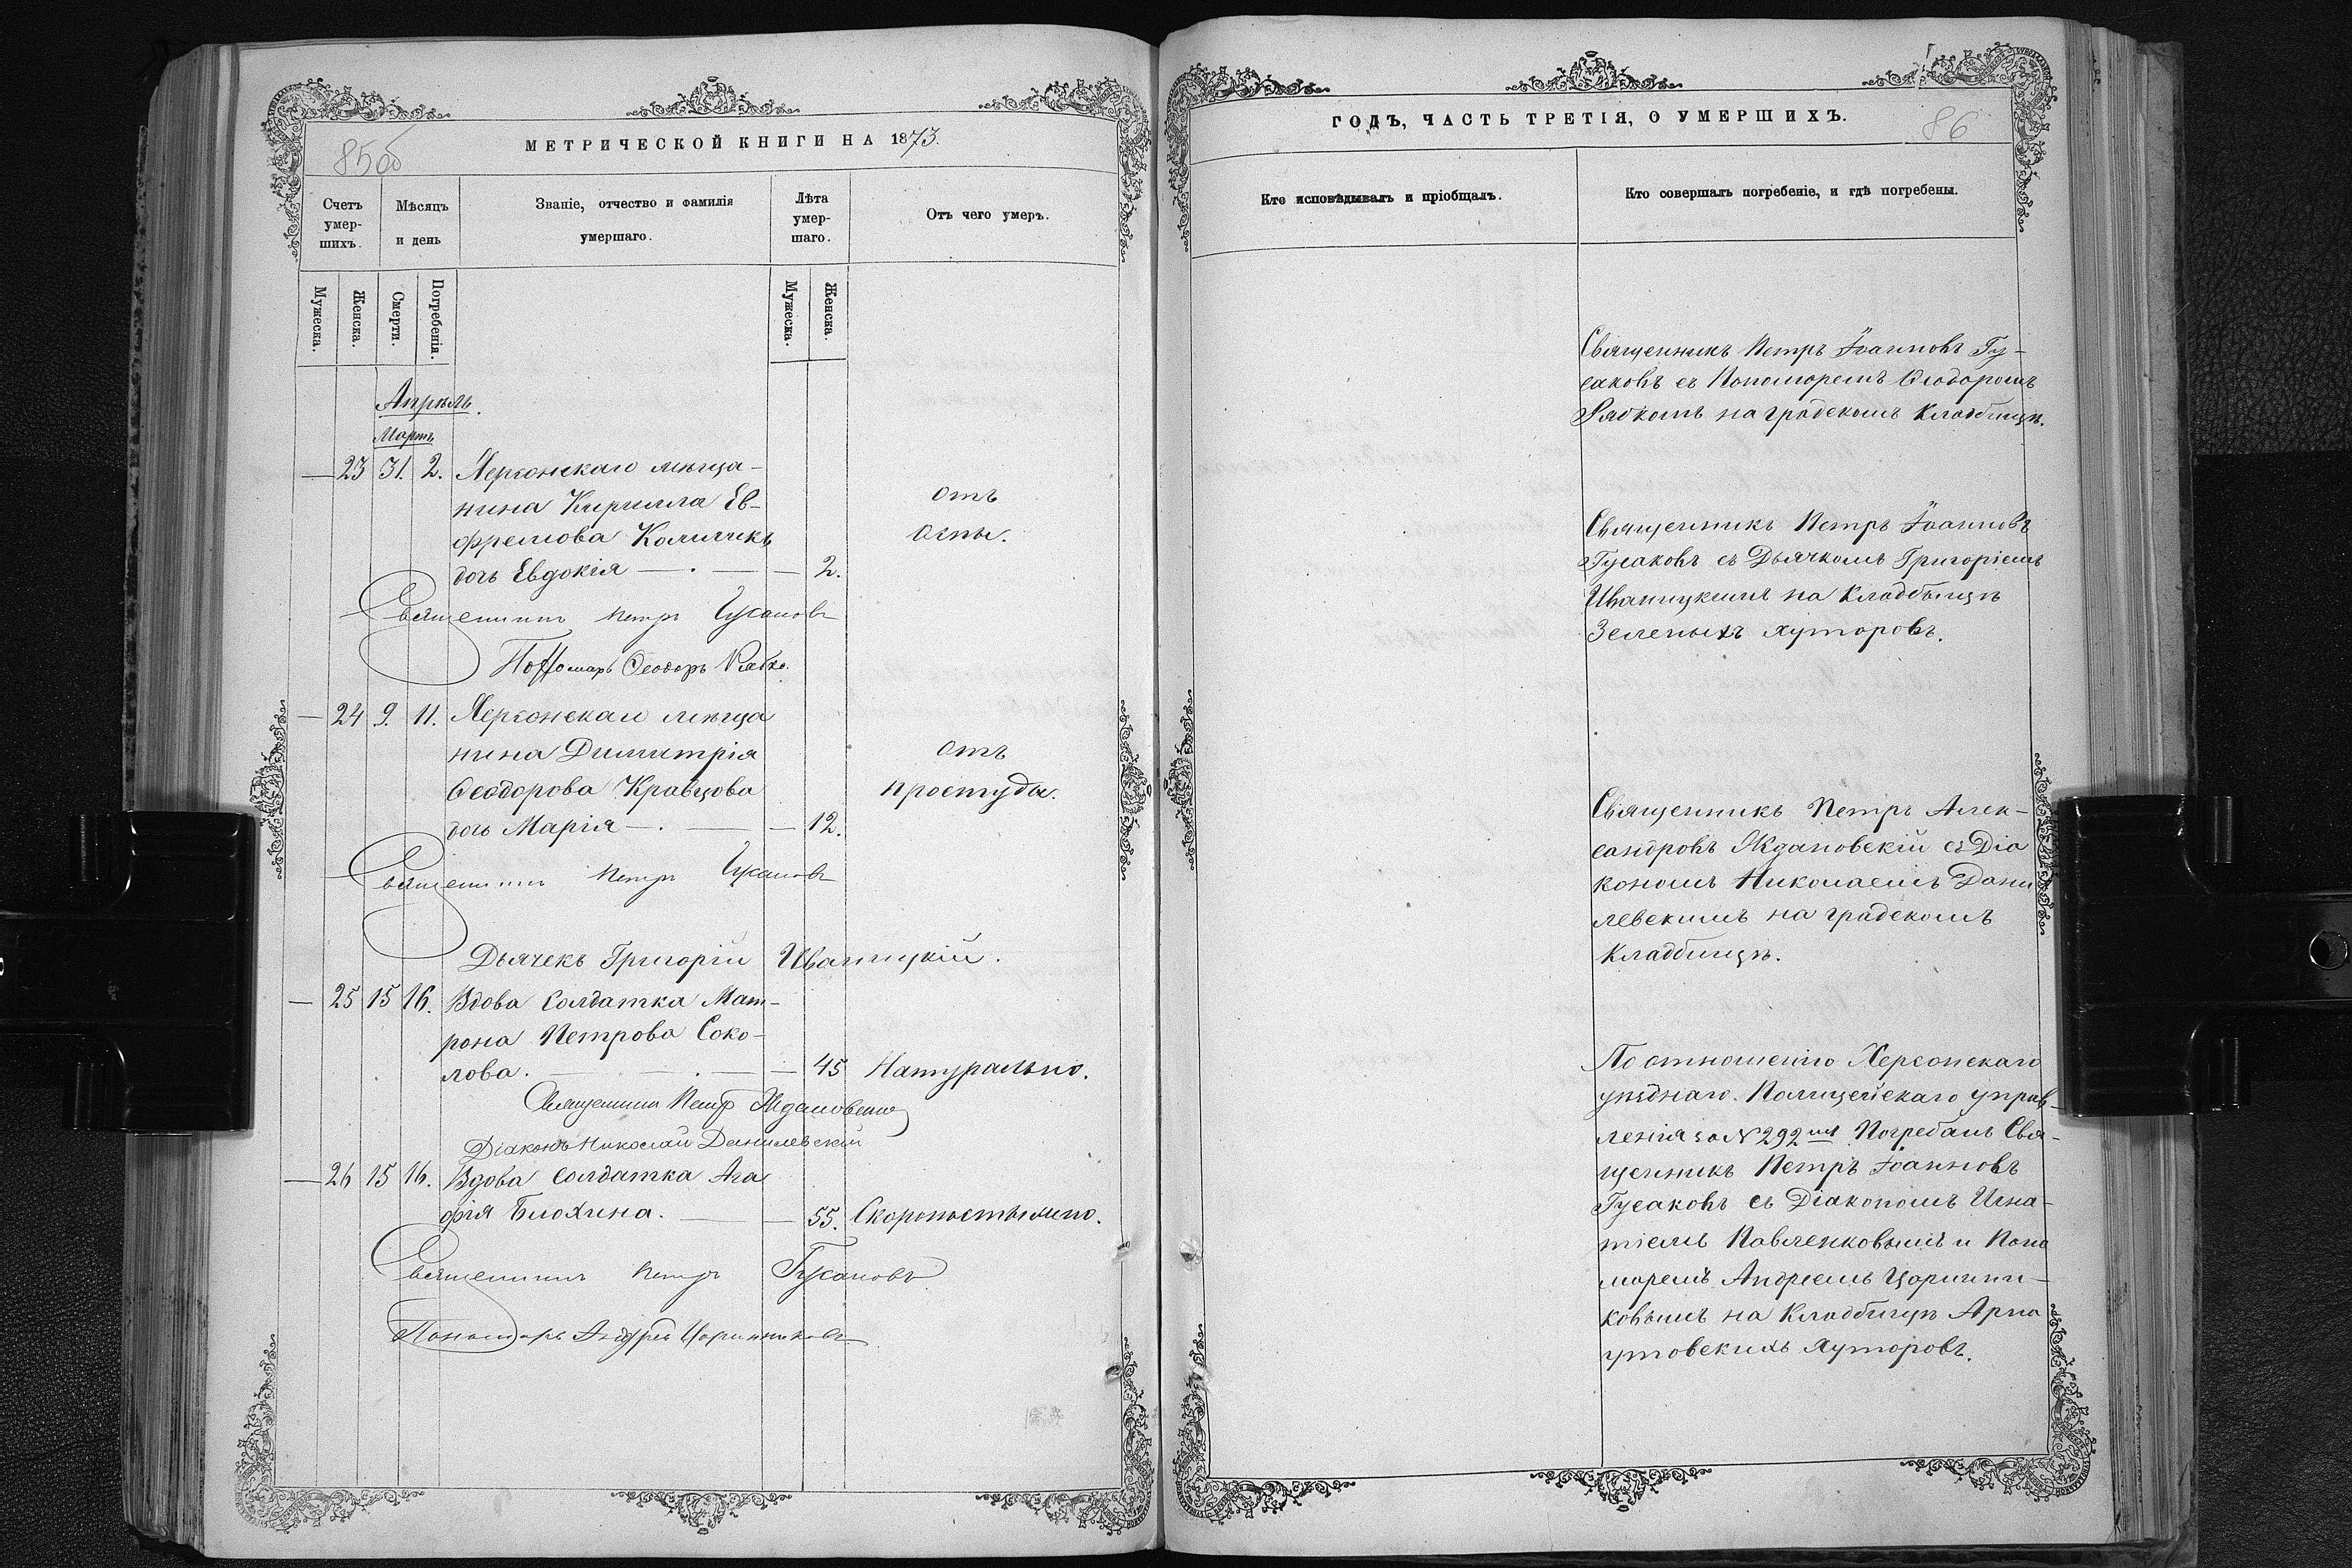 МЕТРИЧЕСКОЙ КНИГИ НА 1873.
85об
Счетъ умер-шихъ.
Мѣсяцъ и день
Званіе, отчество и фамилія умершаго.
Лѣта умер-шаго.
Отъ чего умеръ.
Мужеска.
Женска.
Смерти.
Погребенія.
Мужеска.
Женска.
Апрѣль.
Мартъ
— 23 31. 2. Херсонскаго мѣща-
нина Кирилла Ев-
фремова
дочь Евдокія — . — — 2.
отъ
оспы.
Священникъ Петръ Гусаковъ
Пономарь Ѳеодоръ Рябко.
— 24 9. 11. Херсонскаго мѣща
нина Димитрія
Ѳеодорова Кравцова
дочь Марія — . — — 12.
отъ
простуды.
Священникъ Петръ Гусаковъ
Дьячекъ Григорій Иваницкій.
— 25 15 16. Вдова солдатка Мат-
рона Петрова Соко-
лова. — . — — 45 Натурально.
Священникъ Петръ Ждановскій
Діаконъ Николай Данилевскій
— 26 15 16. Вдова солдатка Ага
фія Блохина. — — 55. Скоропостыжно.
Священникъ Петръ Гусаковъ
Пономарь Андрей Царинниковъ
ГОДЪ, ЧАСТЬ ТРЕТІЯ, О УМЕРШИХЪ.
86
Кто исповѣдывалъ и пріобщалъ.
Кто совершалъ погребеніе, и гдѣ погребены.
Священникъ Петръ Іоанновъ Гу-
саковъ съ Пономоремъ Ѳеодоромъ
Рябкомъ на градскомъ кладбищѣ.
Священникъ Петръ Іоанновъ
Гусаковъ съ Дьячкомъ Григоріемъ
Иваницкимъ на кладбищѣ
Зеленыхъ хуторовъ.
Священникъ Петръ Алек-
сандровъ Ждановскій съ Діа
кономъ Николаемъ Дани
левскимъ на градскомъ
кладбищѣ.
По отношенію Херсонскаго
уѣзднаго Полицейскаго управ-
ленія за № 292мъ Погребалъ Свя-
щенникъ Петръ Іоанновъ
Гусаковъ съ Діакономъ Игна-
тіемъ Павленковымъ и Поно
моремъ Андреемъ Царинни-
ковымъ на кладбищѣ Арна
утовскихъ хуторовъ.